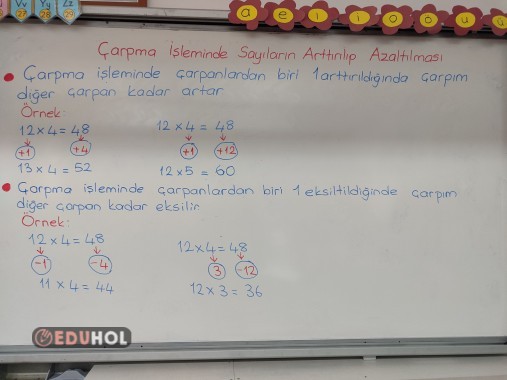 Vv Yy Zz
27 28 29
a e ı i o ö u ü
Çarpma İşleminde Sayıların Arttırılıp Azaltılması
Çarpma işleminde çarpanlardan biri 1 arttırıldığında çarpım
diğer çarpan kadar artar.
Örnek:
12 x 4 = 48
+1 +4
13 x 4 = 52
12 x 4 = 48
+1 +12
12 x 5 = 60
Çarpma işleminde çarpanlardan biri 1 eksiltildiğinde çarpım
diğer çarpan kadar eksilir.
Örnek:
12 x 4 = 48
-1 -4
11 x 4 = 44
12 x 4 = 48
3 -12
12 x 3 = 36
EDUHOL